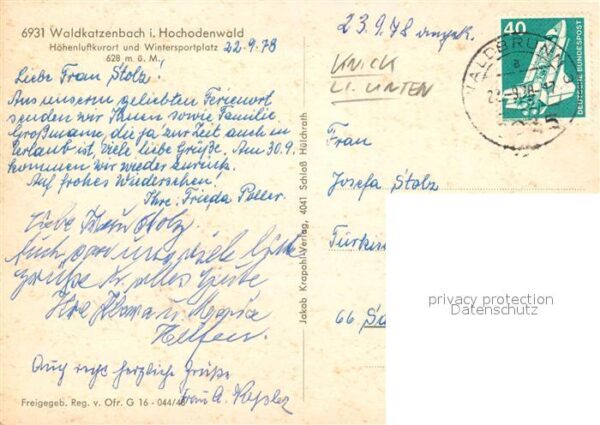 6931 Waldkatzenbach i. Hochodenwald
Höhenluftkurort und Wintersportplatz
628 m ü. M.
22.9.78
Liebe Frau Stolz!
Aus unserem geliebten Ferienort
senden wir Ihnen sowie Familie
Großmann, die ja zur Zeit auch in
Urlaub ist, viele liebe Grüße. Am 30.9.
kommen wir wieder zurück.
Auf frohes Wiedersehen!
Ihre Frieda
Liebe Frau Stolz,
Auch von uns viele liebe
Grüße u. alles Gute
Ihre u. Maria
Auch recht herzliche Grüße
Frau A. Keßler
Freigegeb. Reg. v. Ofr. G 16 - 044/48
Jakob Krapohl-Verlag, 4041 Schloß Hülchrath
23.9.78
KNICK
LI. UNTEN
40
DEUTSCHE BUNDESPOST
WALDBRUNN
Frau
Josefa Stolz
66
privacy protection
Datenschutz